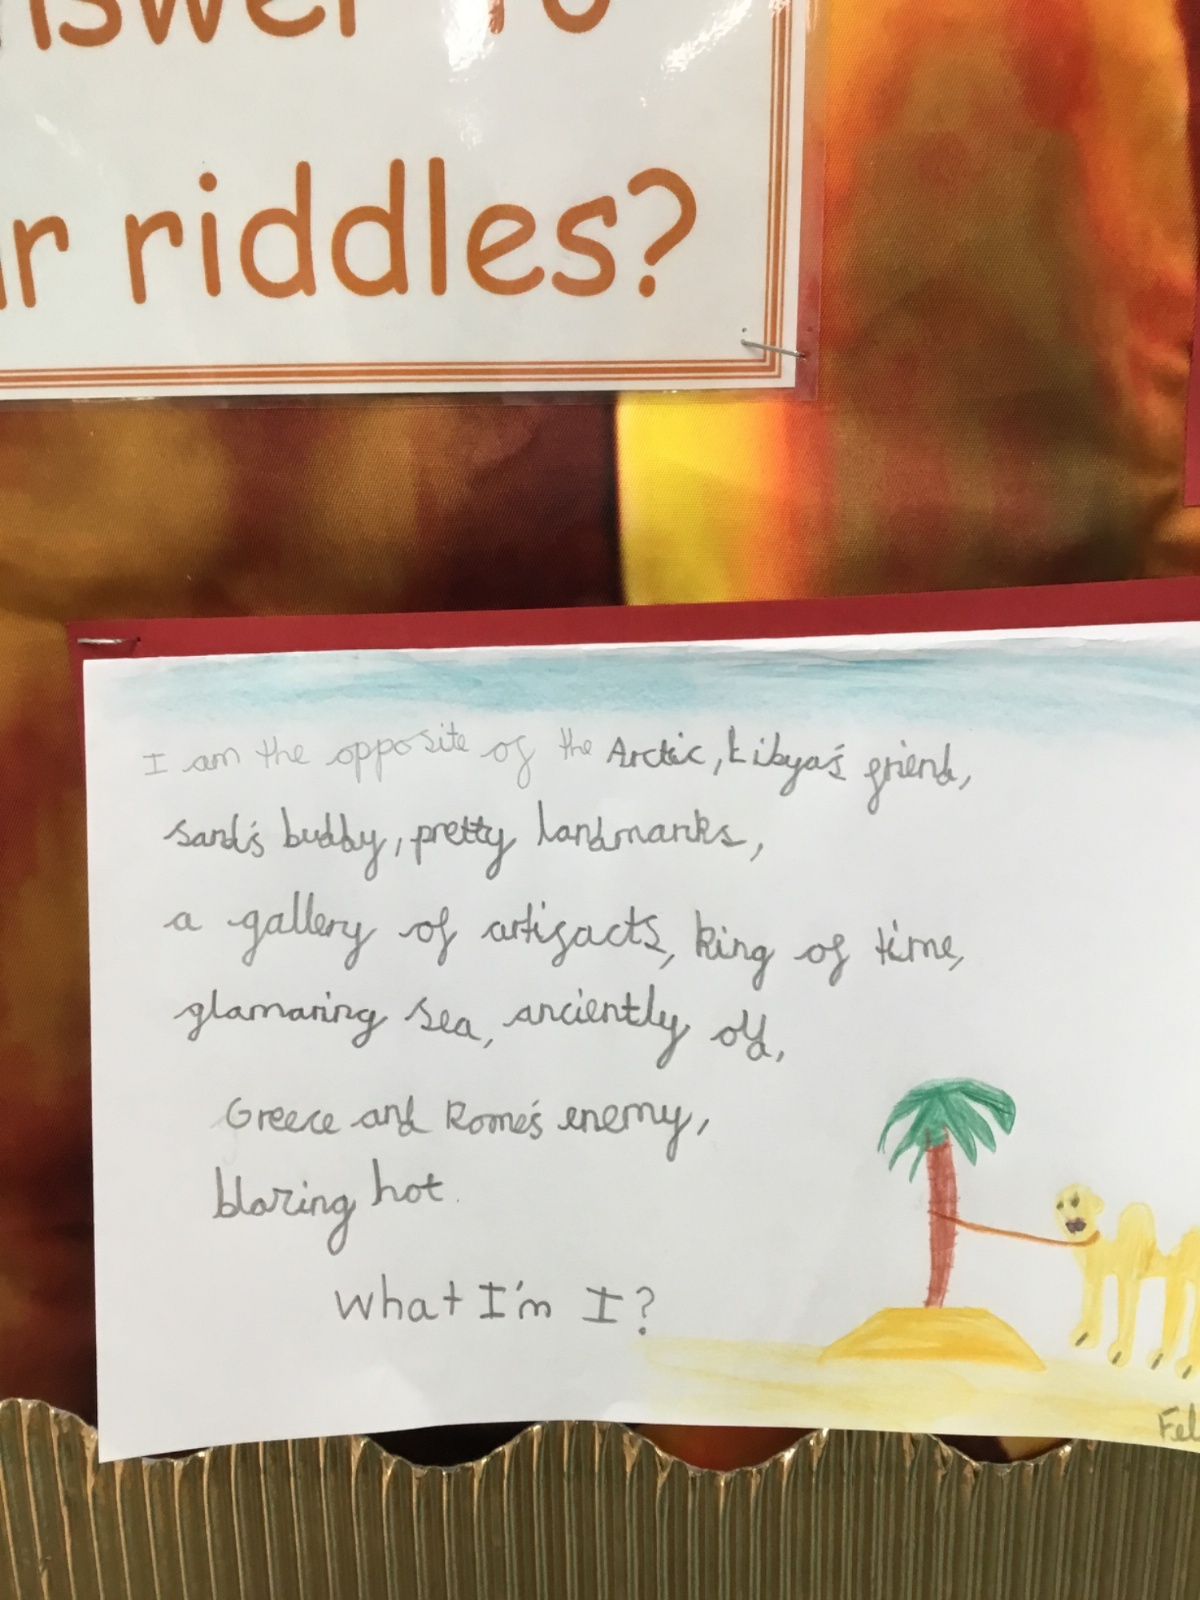 nswer to
r riddles?
I am the opposite of the Arctic, Libya's friend,
sand's buddy, pretty landmarks,
a gallery of artifacts, king of time,
glamaring sea, anciently old,
Greece and Rome's enemy,
blazing hot.
What I'm I?
Fel